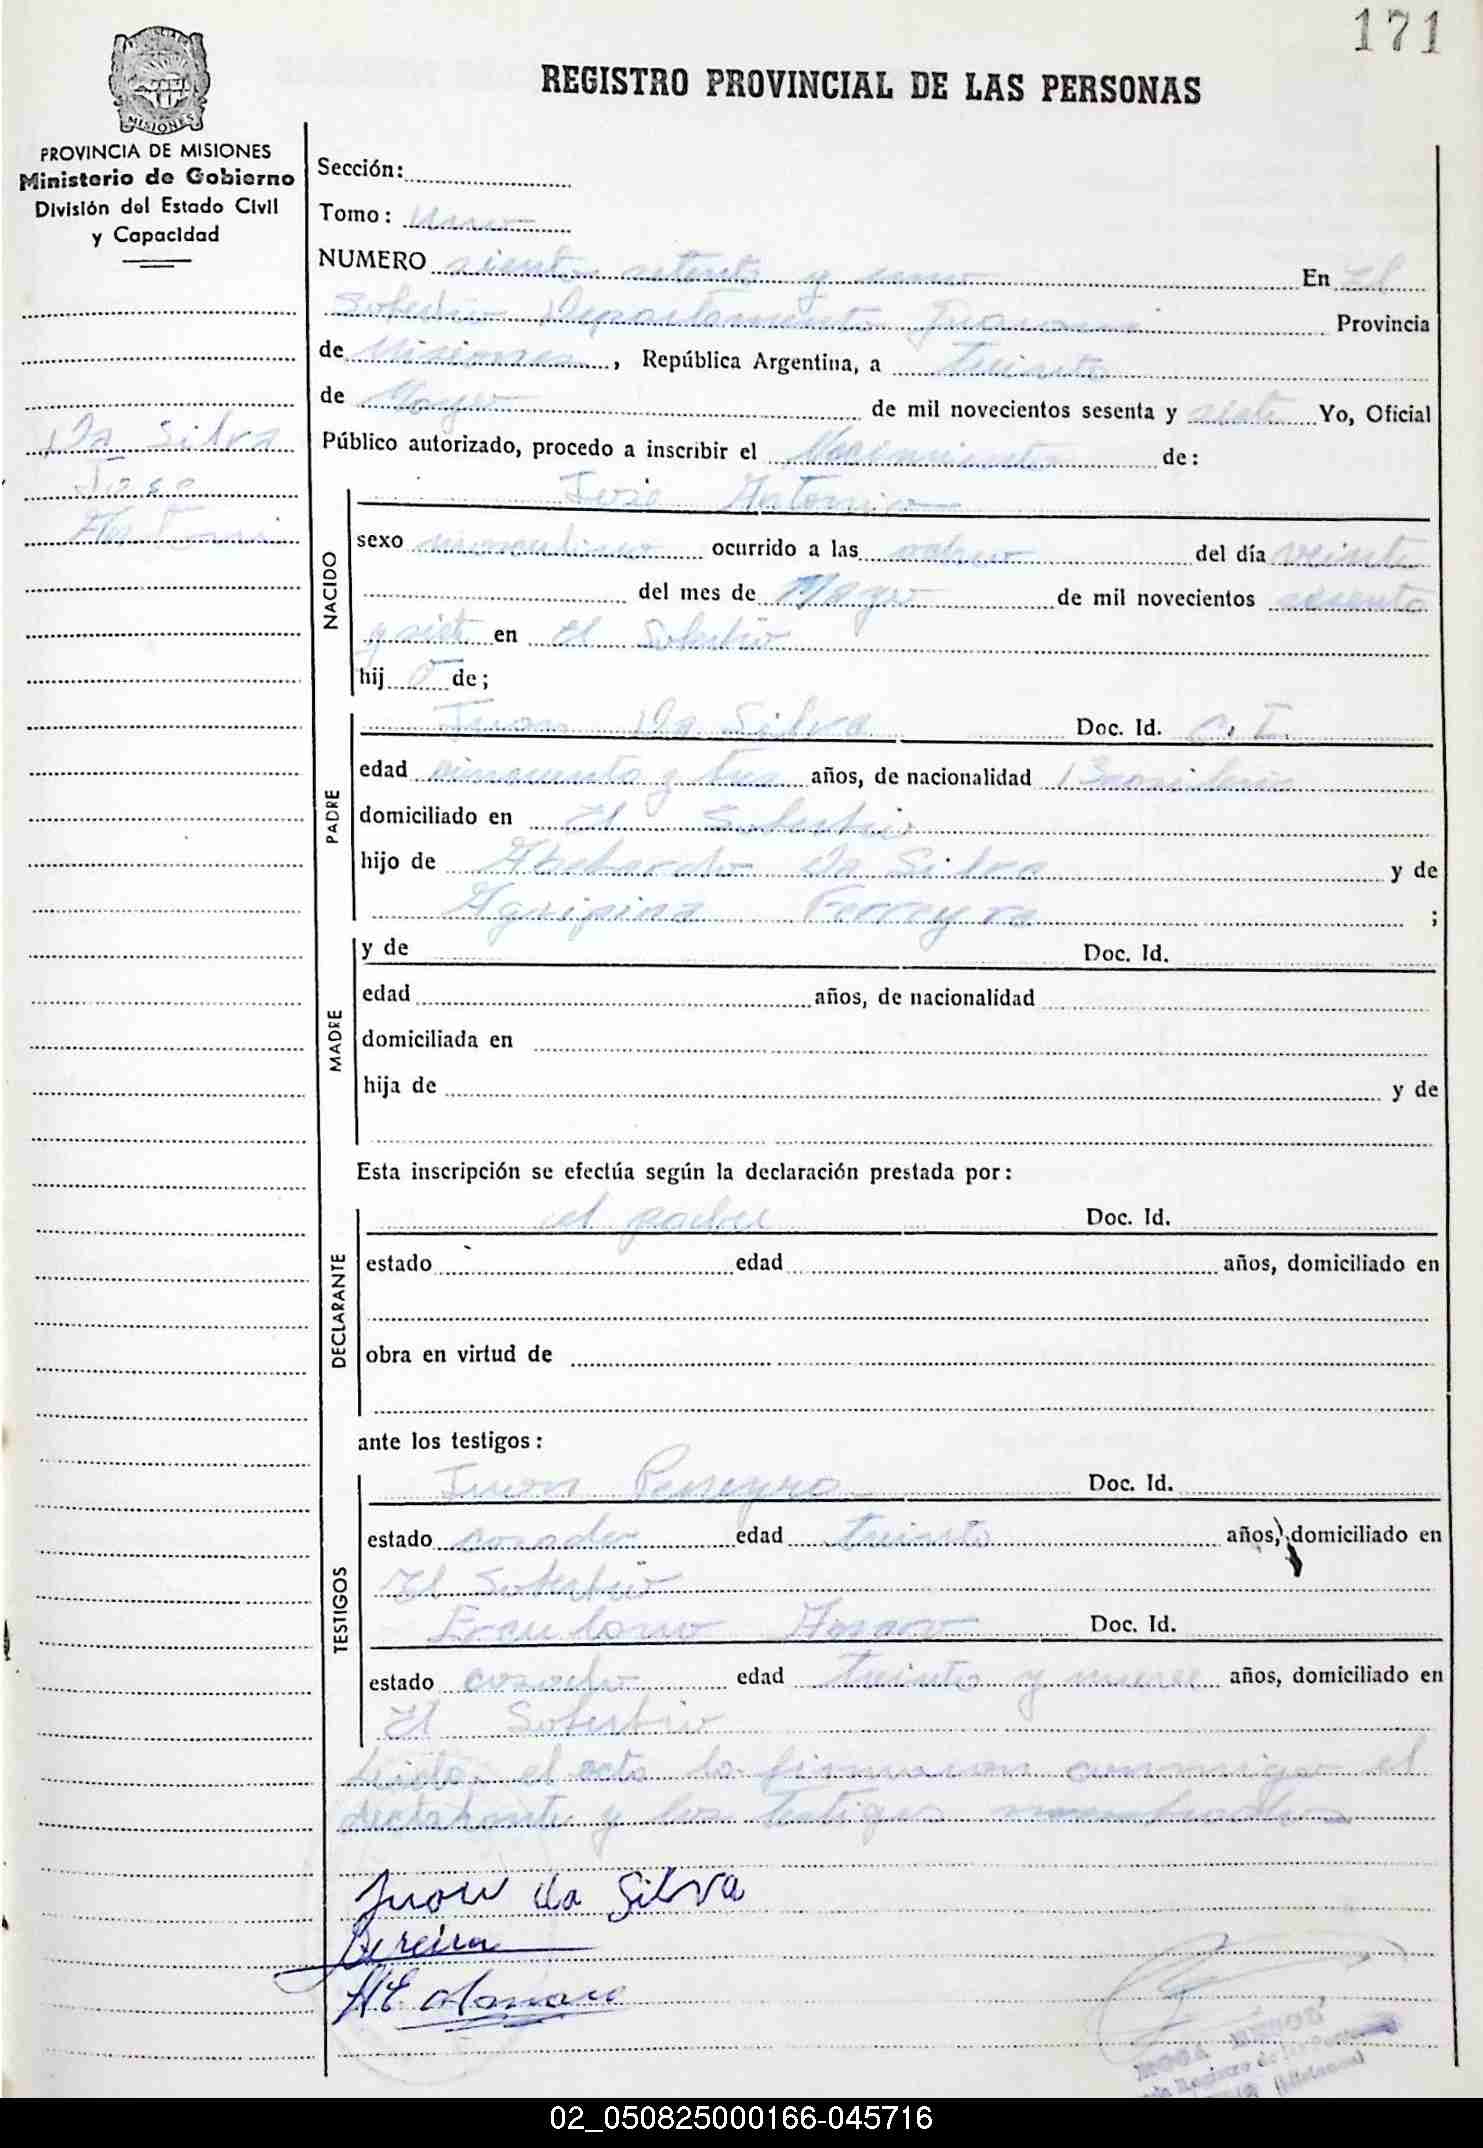 171
REGISTRO PROVINCIAL DE LAS PERSONAS
MISIONES
PROVINCIA DE MISIONES
Ministerio de Gobierno
División del Estado Civil
y Capacidad
Da Silva
Jose
Antonio
Sección:
Tomo: Uno
NUMERO siento setenta y uno En El
Soberbio Departamento Guarani Provincia
de Misiones, República Argentina, a Treinta
de Mayo de mil novecientos sesenta y siete Yo, Oficial
Público autorizado, procedo a inscribir el Nacimiento de:
NACIDO
José Antonio
sexo masculino ocurrido a las ocho del día veinte
del mes de Mayo de mil novecientos sesenta
y siete en El Soberbio
hijo de;
PADRE
Juan Da Silva Doc. Id. C. I.
edad cincuenta y tres años, de nacionalidad Brasilera
domiciliado en El Soberbio
hijo de Abelardo Da Silva y de
Agripina Ferreyra ;
MADRE
y de Doc. Id.
edad años, de nacionalidad
domiciliada en
hija de y de
Esta inscripción se efectúa según la declaración prestada por:
DECLARANTE
el padre Doc. Id.
estado edad años, domiciliado en
obra en virtud de
ante los testigos:
TESTIGOS
Juan Pereyra Doc. Id.
estado casado edad treinta años, domiciliado en
El Soberbio
Erculano Doc. Id.
estado casado edad treinta y nueve años, domiciliado en
El Soberbio
Leida el acta la firmaron conmigo el
declarante y los testigos nombrados
Juan da Silva
Pereira
02_050825000166-045716